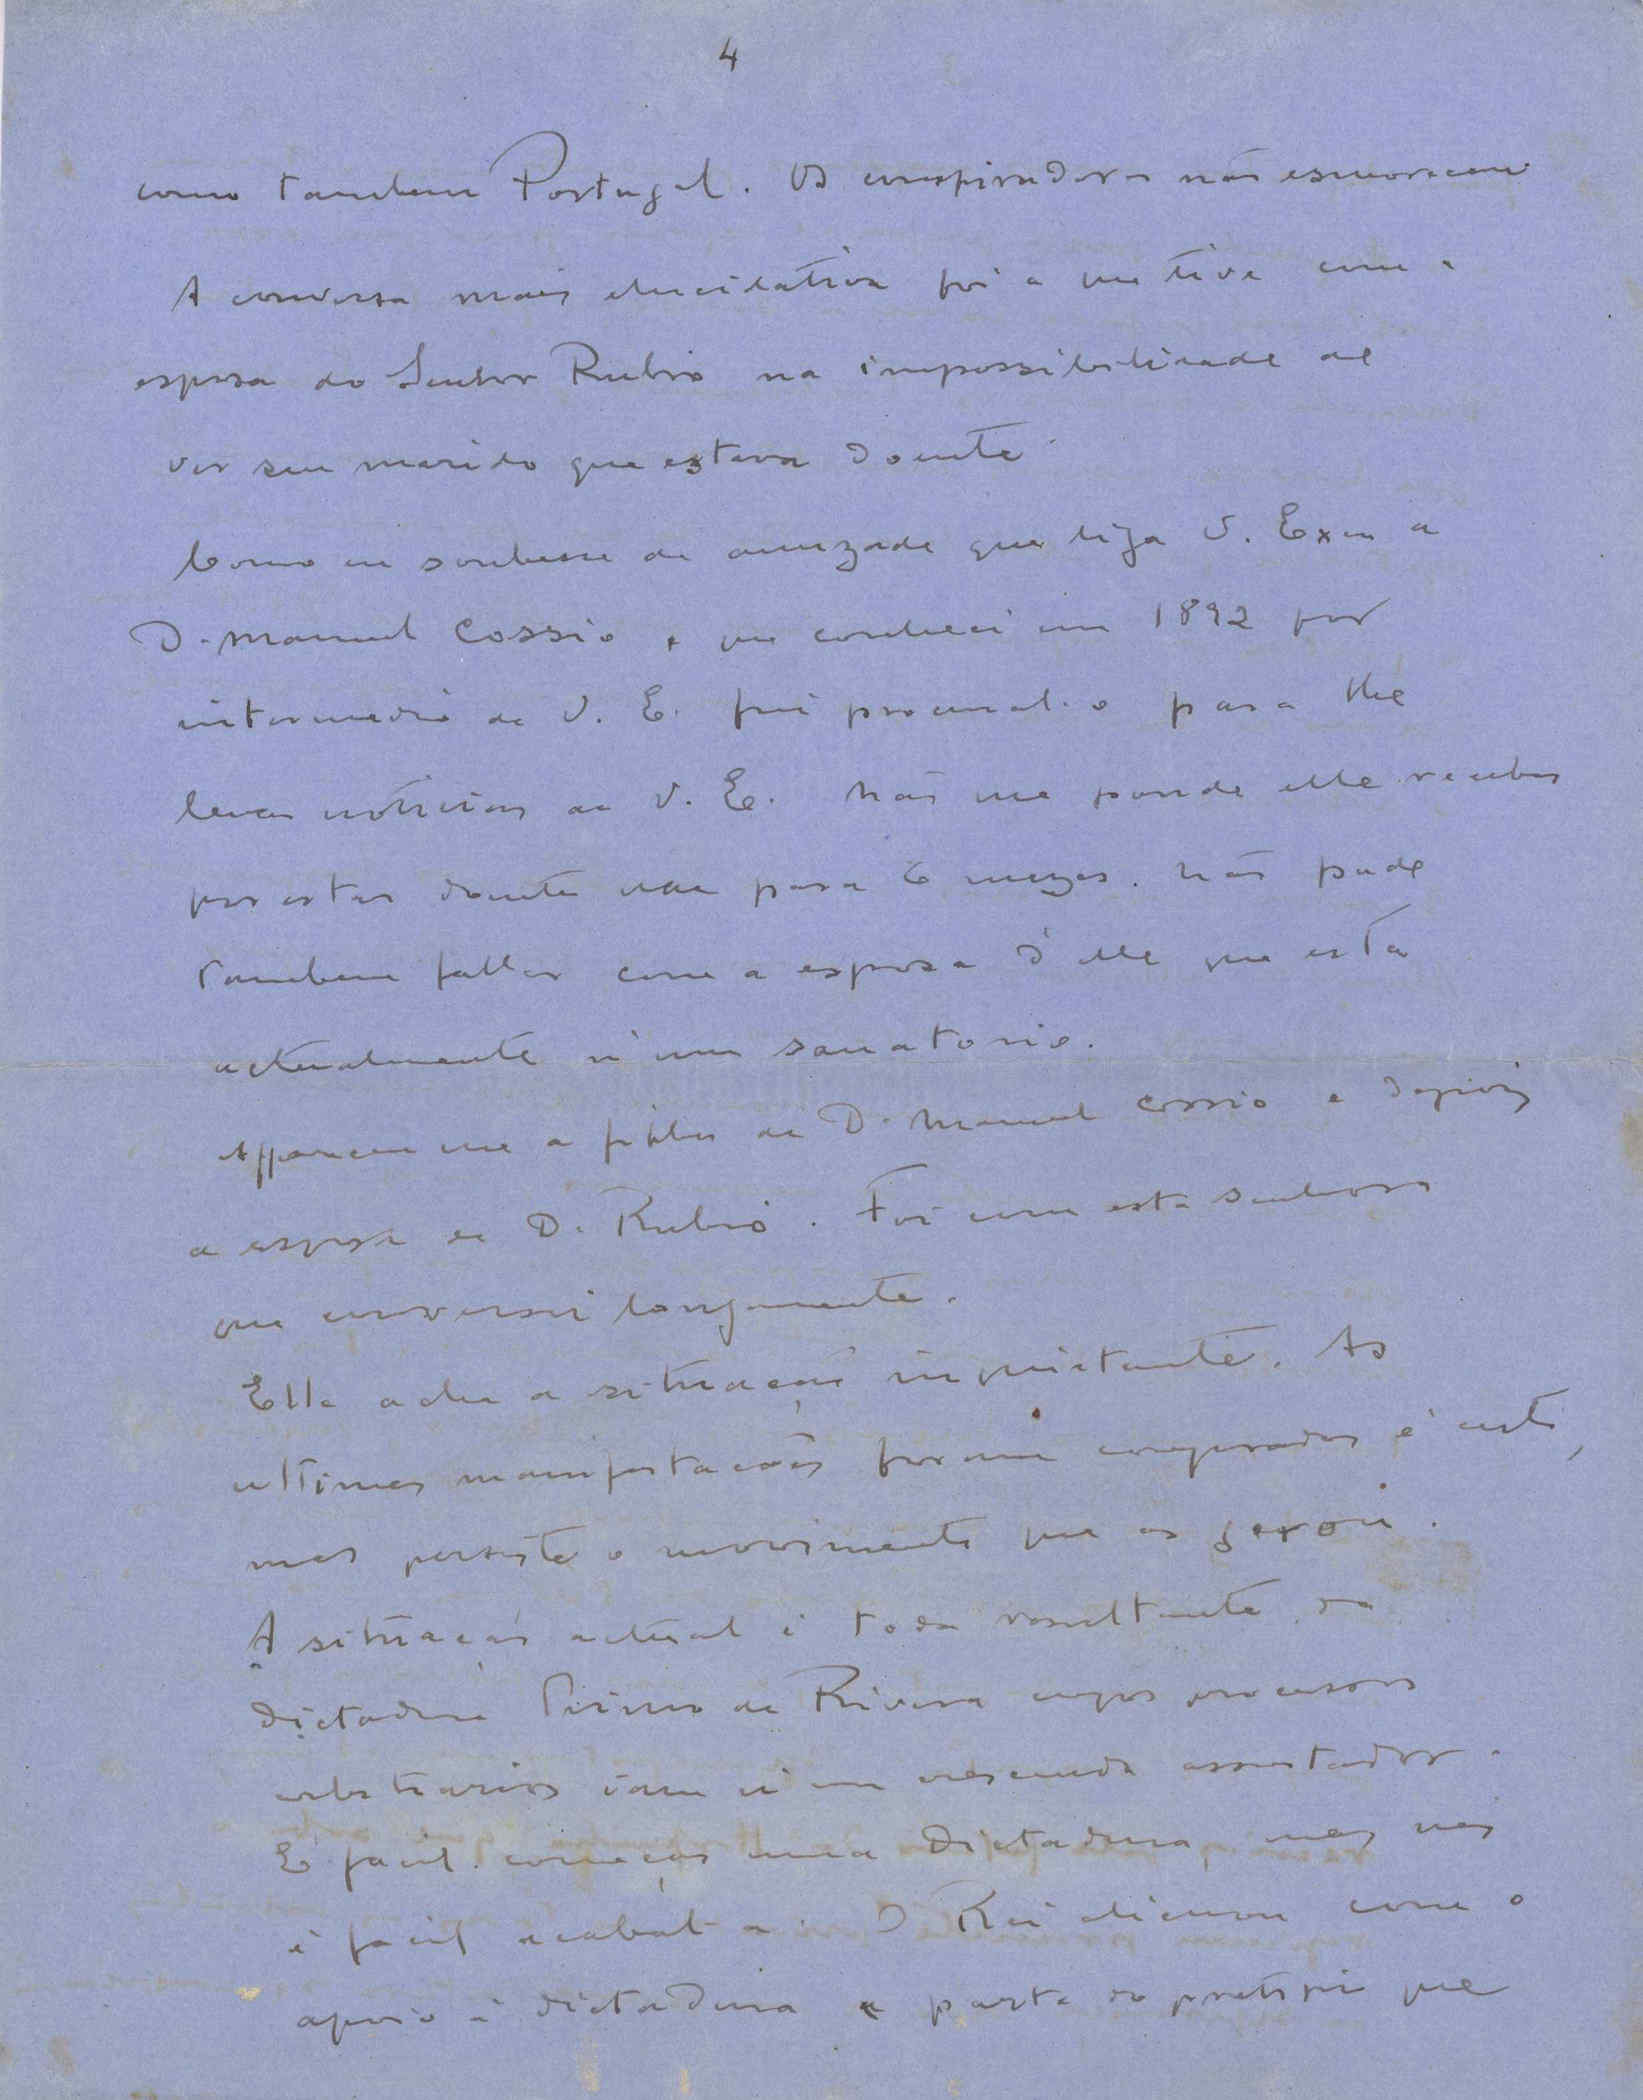 4
como tambem Portugal. Os conspiradores não esmorecem
A conversa mais elucidativa foi a que tive com a
esposa do Senhor Rubio na impossibilidade de
ver seu marido que estava doente.
Como eu soubesse da amizade que liga V. Exa a
D. Manuel Cossio e que conheci em 1892 por
intermedio de V. E. fui procural-o para lhe
levar noticias de V. E. Não me poude elle receber
por estar doente vae para 6 mezes. Não pude
tambem fallar com a esposa d'elle que está
actualmente n'um sanatorio.
Appareceu me a filha de D. Manuel Cossio e depois
a esposa de D. Rubió. Foi com esta senhora
que conversei longamente.
Ella acha a situação inquietante. As
ultimas manifestações foram compradas é certo,
mas persiste o movimento que as gerou.
A situação actual é toda resultante da
dictadura Primo de Rivera cujos processos
arbitrarios iam n'um crescendo assustador.
É facil começar uma dictadura, mas não
é facil acabal-a. O Rei alienou com o
apoio á dictadura a parte do prestigio que